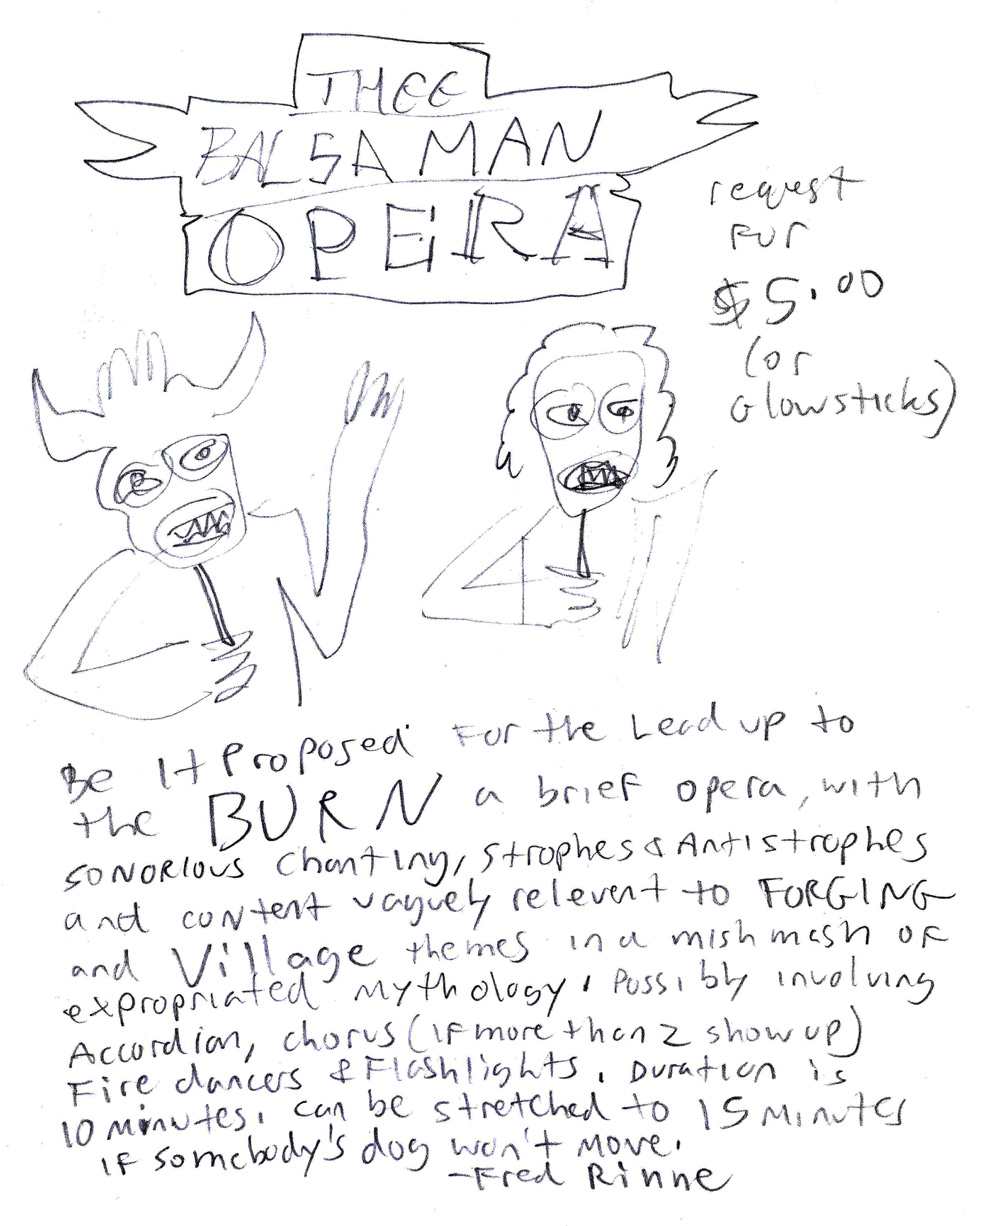 THEE
BALSA MAN
OPERA
request
FUR
$5.00
(or
Glowsticks)
Be It Proposed For the Lead up to
the BURN a brief opera, with
SONORIOUS Chanting, Strophes & Antistrophes
and content vaguely relevent to FORGING
and Village themes in a mishmash of
expropriated Mythology, Possibly involving
Accordian, chorus (if more than 2 show up)
Fire dancers & Flashlights. Duration is
10 minutes. can be stretched to 15 Minutes
IF Somebody's dog won't move.
-Fred Rinne